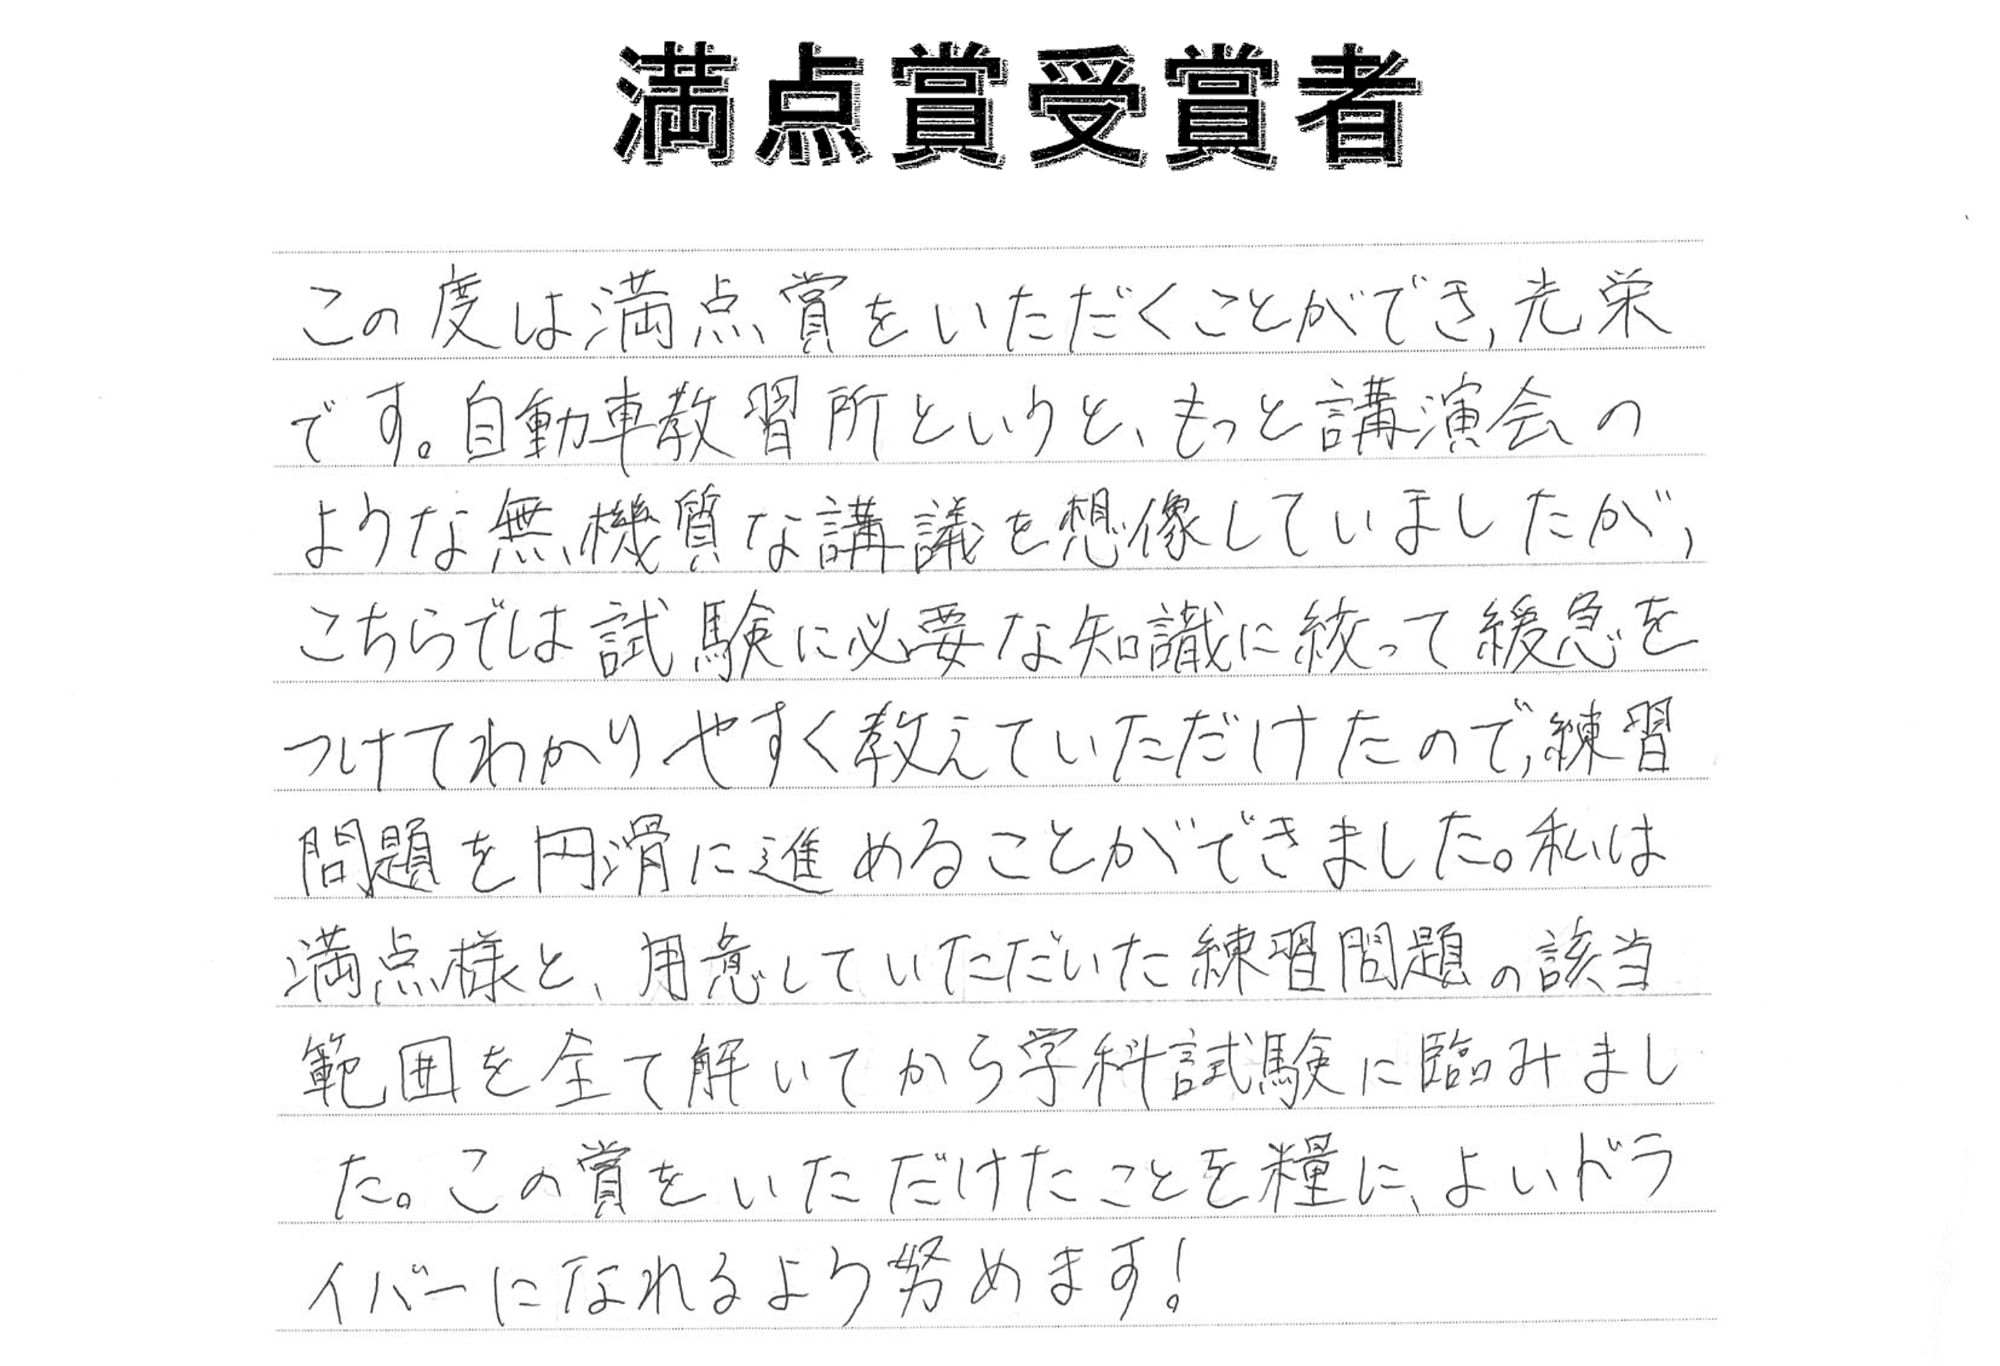 満点賞受賞者
この度は満点賞をいただくことができ,光栄
です。自動車教習所というと、もっと講演会の
ような無機質な講議を想像していましたが,
こちらでは試験に必要な知識に絞って緩急を
つけてわかりやすく教えていただけたので,練習
問題を円滑に進めることができました。私は
満点様と、用意していただいた練習問題の該当
範囲を全て解いてから学科試験に臨みまし
た。この賞をいただけたことを糧に、よいドラ
イバーになれるよう努めます!